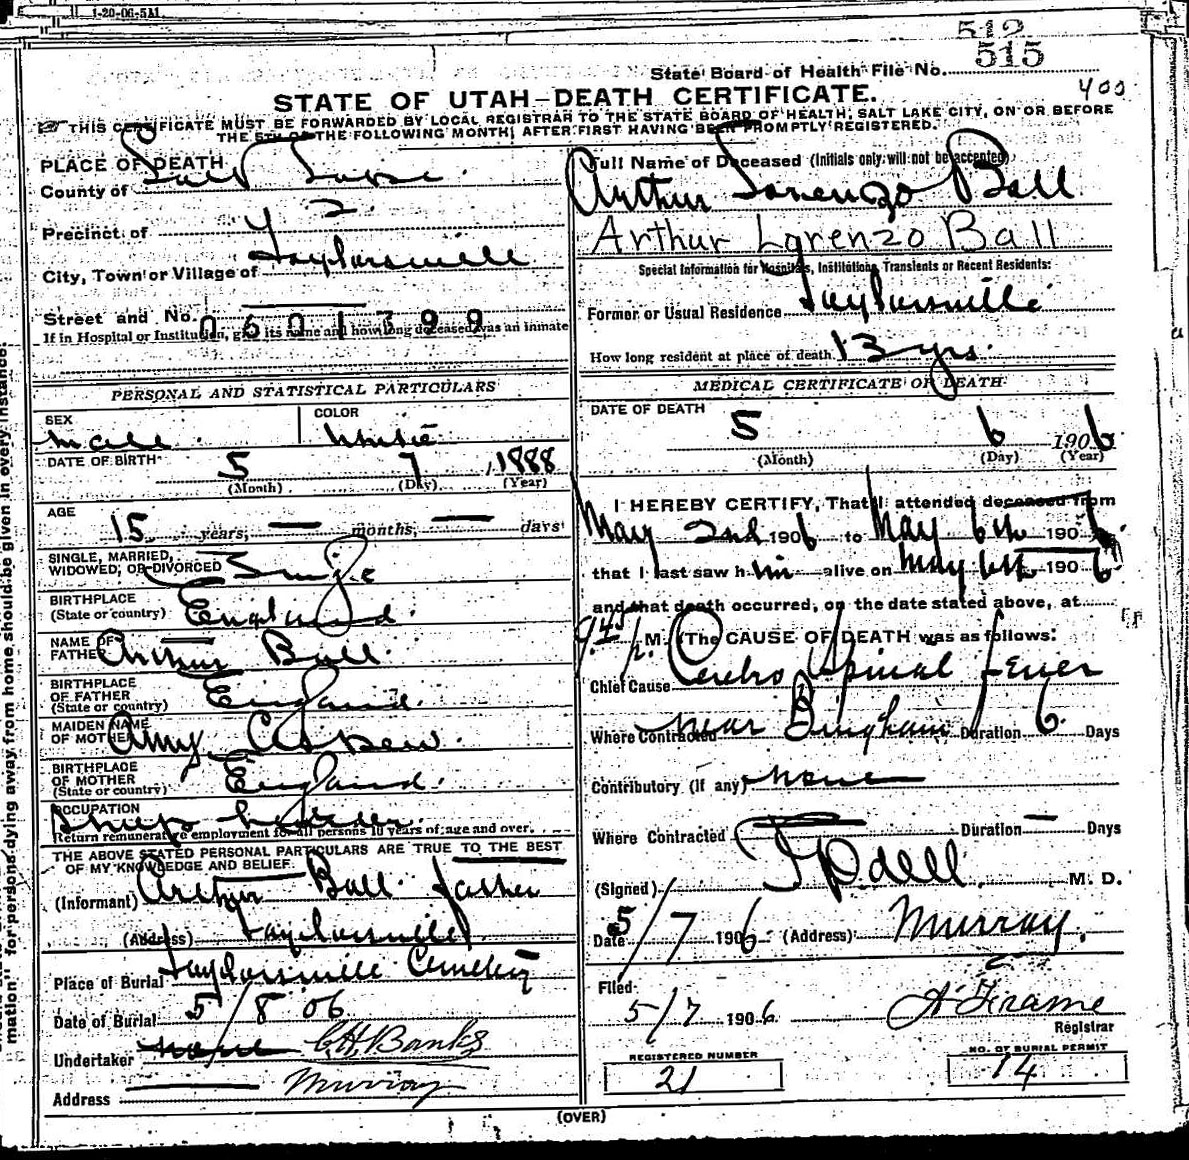 1-20-06-5M
512
State Board of Health File No. 515
400
STATE OF UTAH—DEATH CERTIFICATE.
THIS CERTIFICATE MUST BE FORWARDED BY LOCAL REGISTRAR TO THE STATE BOARD OF HEALTH, SALT LAKE CITY, ON OR BEFORE
THE 5TH OF THE FOLLOWING MONTH, AFTER FIRST HAVING BEEN PROMPTLY REGISTERED.
PLACE OF DEATH
County of Salt Lake
Precinct of
City, Town or Village of Taylorsville
Street and No.
0601399
If in Hospital or Institution, give its name and how long deceased was an inmate
PERSONAL AND STATISTICAL PARTICULARS
SEX male
COLOR White
DATE OF BIRTH 5 7 1888
(Month) (Day) (Year)
AGE
15 years, — months, — days
SINGLE, MARRIED,
WIDOWED, OR DIVORCED Single
BIRTHPLACE
(State or country) England
NAME OF
FATHER Arthur Ball
BIRTHPLACE
OF FATHER
(State or country) England
MAIDEN NAME
OF MOTHER Amy
BIRTHPLACE
OF MOTHER
(State or country) England
OCCUPATION
Sheep herder
Return remunerative employment for all persons 10 years of age and over.
THE ABOVE STATED PERSONAL PARTICULARS ARE TRUE TO THE BEST
OF MY KNOWLEDGE AND BELIEF.
(Informant) Arthur Ball father
(Address) Taylorsville
Place of Burial Taylorsville Cemetery
Date of Burial 5/8 06
Undertaker none C.H. Banks
Address Murray
Full Name of Deceased (Initials only will not be accepted)
Arthur Lorenzo Ball
Arthur Lorenzo Ball
Special Information for Hospitals, Institutions, Transients or Recent Residents:
Former or Usual Residence Taylorsville
How long resident at place of death 13 yrs.
MEDICAL CERTIFICATE OF DEATH
DATE OF DEATH
5 6 1906
(Month) (Day) (Year)
I HEREBY CERTIFY, That I attended deceased from
May 2nd 1906 to May 6th 1906
that I last saw him alive on May 6th 1906
and that death occurred, on the date stated above, at
9.45 p. M. The CAUSE OF DEATH was as follows:
Chief Cause Cerebro Spinal fever
Where Contracted near Bingham Duration 6 Days
Contributory (if any) none
Where Contracted — Duration — Days
(Signed) M. D.
Date 5/7 1906 (Address) Murray.
Filed
5/7 1906 A Frame
Registrar
REGISTERED NUMBER
21
NO. OF BURIAL PERMIT
14
(OVER)
mation" for persons dying away from home should be given in every instance.